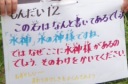 もんだい12
この石はなんと書いてあるでしょう
水神 水の神様ですね。
ではなぜここに水神様があるの
でしょう。そのわけをかいてください。